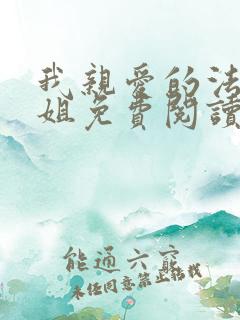 我親愛的法
姐免費閱讀
能通六寶
未任同意禁止轉載